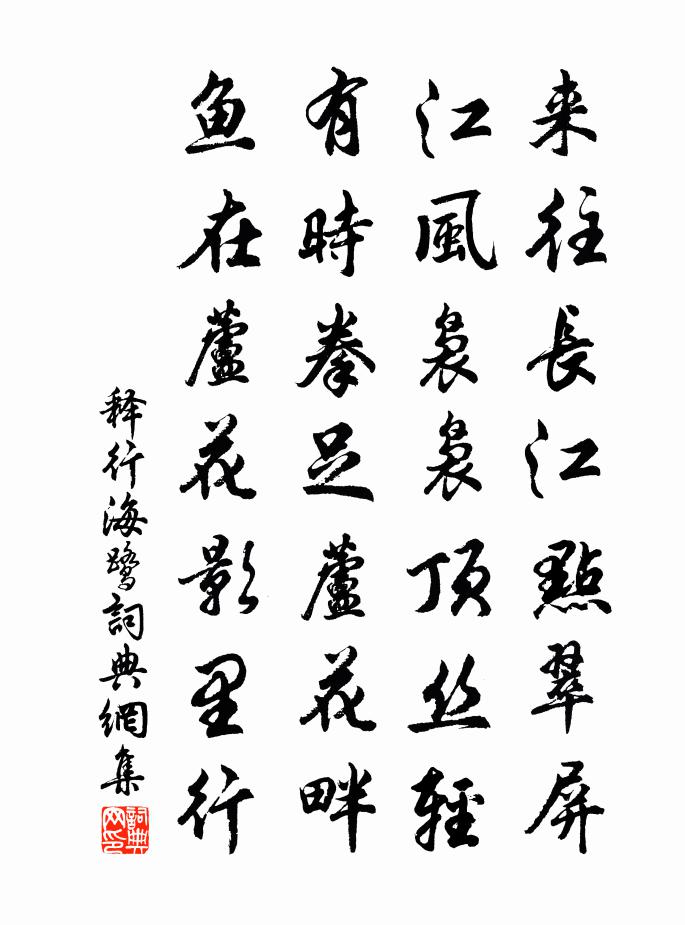 来往長江點翠屏
江風裊裊頂丝輕
有時拳足蘆花畔
鱼在蘆花影里行
释行海鹭詞典網集
詞典网印